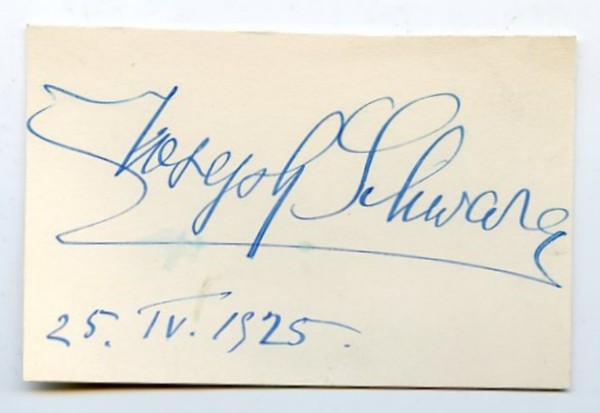 Joseph Schwarz
25. IV. 1925.